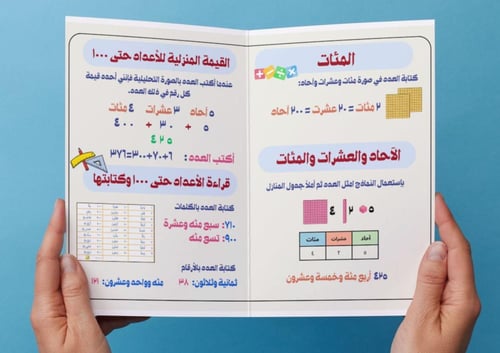 المئات
كتابة العدد في صورة مئات وعشرات وآحاد:
٢ مئات = ٢٠ عشرت = ٢٠٠ آحاد
الآحاد والعشرات والمئات
باستعمال النماذج امثل العدد ثم أملأ جدول المنازل
٤ ٢ ٥
مئات عشرات آحاد
٤ ٢ ٥
٤٢٥ أربع مئة وخمسة وعشرون
القيمة المنزلية للأعداد حتى ١٠٠٠
عندما أكتب العدد بالصورة التحليلية فإنني أحدد قيمة
كل رقم في ذلك العدد.
٥ آحاد ٣ عشرات ٤ مئات
٥ + ٣٠ + ٤٠٠
٤ ٢ ٥
أكتب العدد : ٦+٧٠+٣٠٠=٣٧٦
قراءة الأعداد حتى ١٠٠٠ وكتابتها
كتابة العدد بالكلمات
٧١٠: سبع مئة وعشرة
٩٠٠: تسع مئة
كتابة العدد بالأرقام
ثمانية وثلاثون: ٣٨ مئه وواحد وعشرون: ١٢١